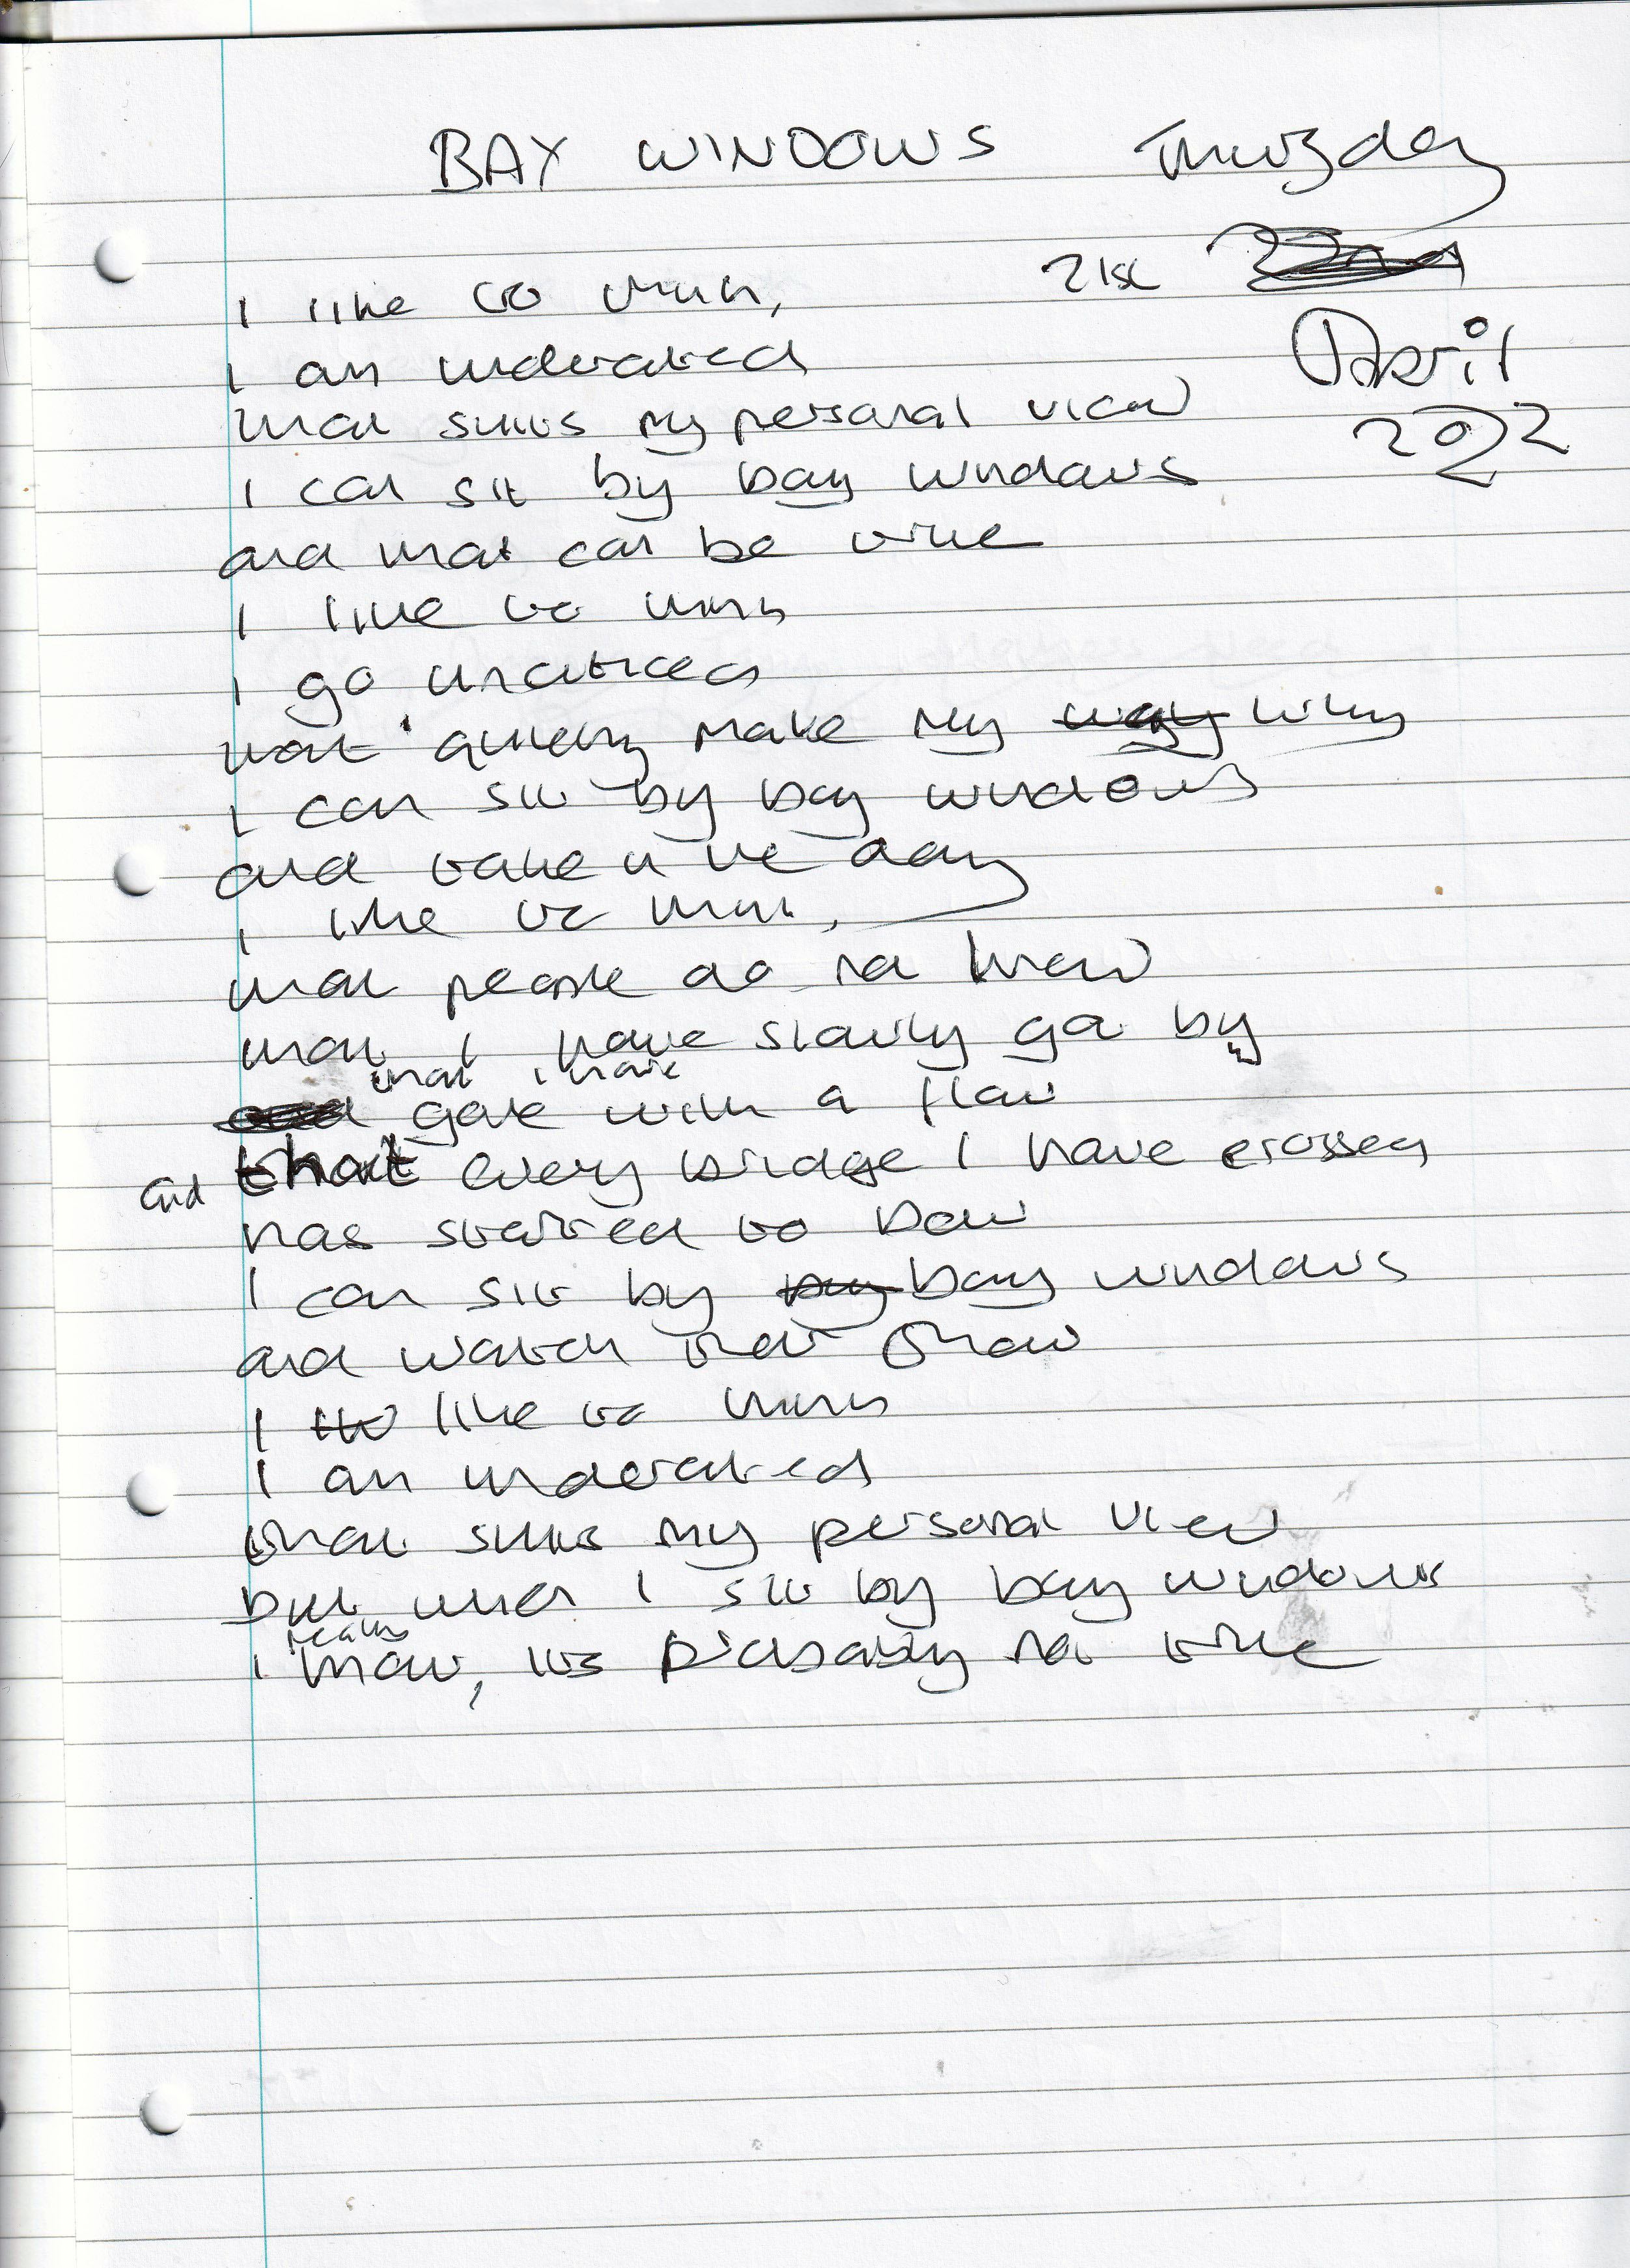 BAY WINDOWS Thursday
21st 22nd
April
2022
I like to think,
I am underrated
that suits my personal view
I can sit by bay windows
and that can be true
I like to think
I go unnoticed
that quietly make my way
I can sit by bay windows
and take in the day
I like to think,
that people do not know
that I have slowly go by
that I have
and gone with a flow
and that every bridge I have crossed
has started to bow
I can sit by bay bay windows
and watch their show
I like to think
I am underrated
that suits my personal view
but when I sit by bay windows
really
I know, its probably not true